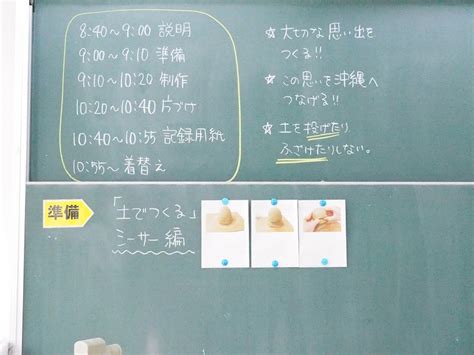 8:40～9:00 説明
9:00～9:10 準備
9:10～10:20 制作
10:20～10:40 片づけ
10:40～10:55 記録用紙
10:55～着替え
☆ 大切な思い出を
つくる!!
☆ この思いを沖縄へ
つなげる!!
☆ 土を投げたり
ふざけたりしない。
準備
「土でつくる」
シーサー編